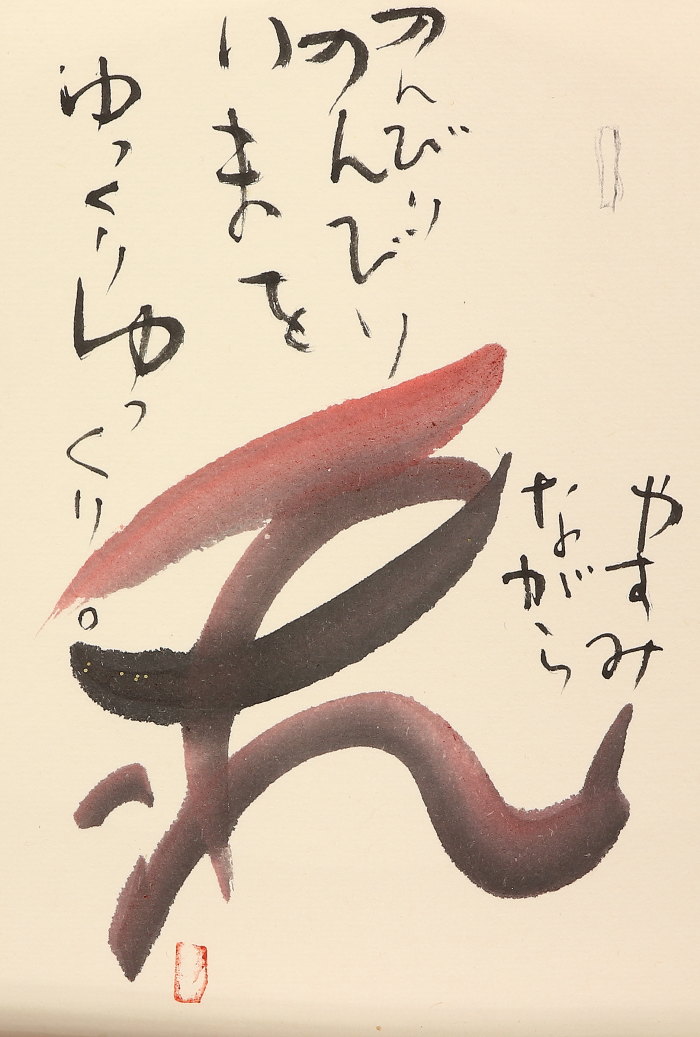 やすみ
ながら
のんびり
のんびり
いまを
ゆっくりゆっくり。